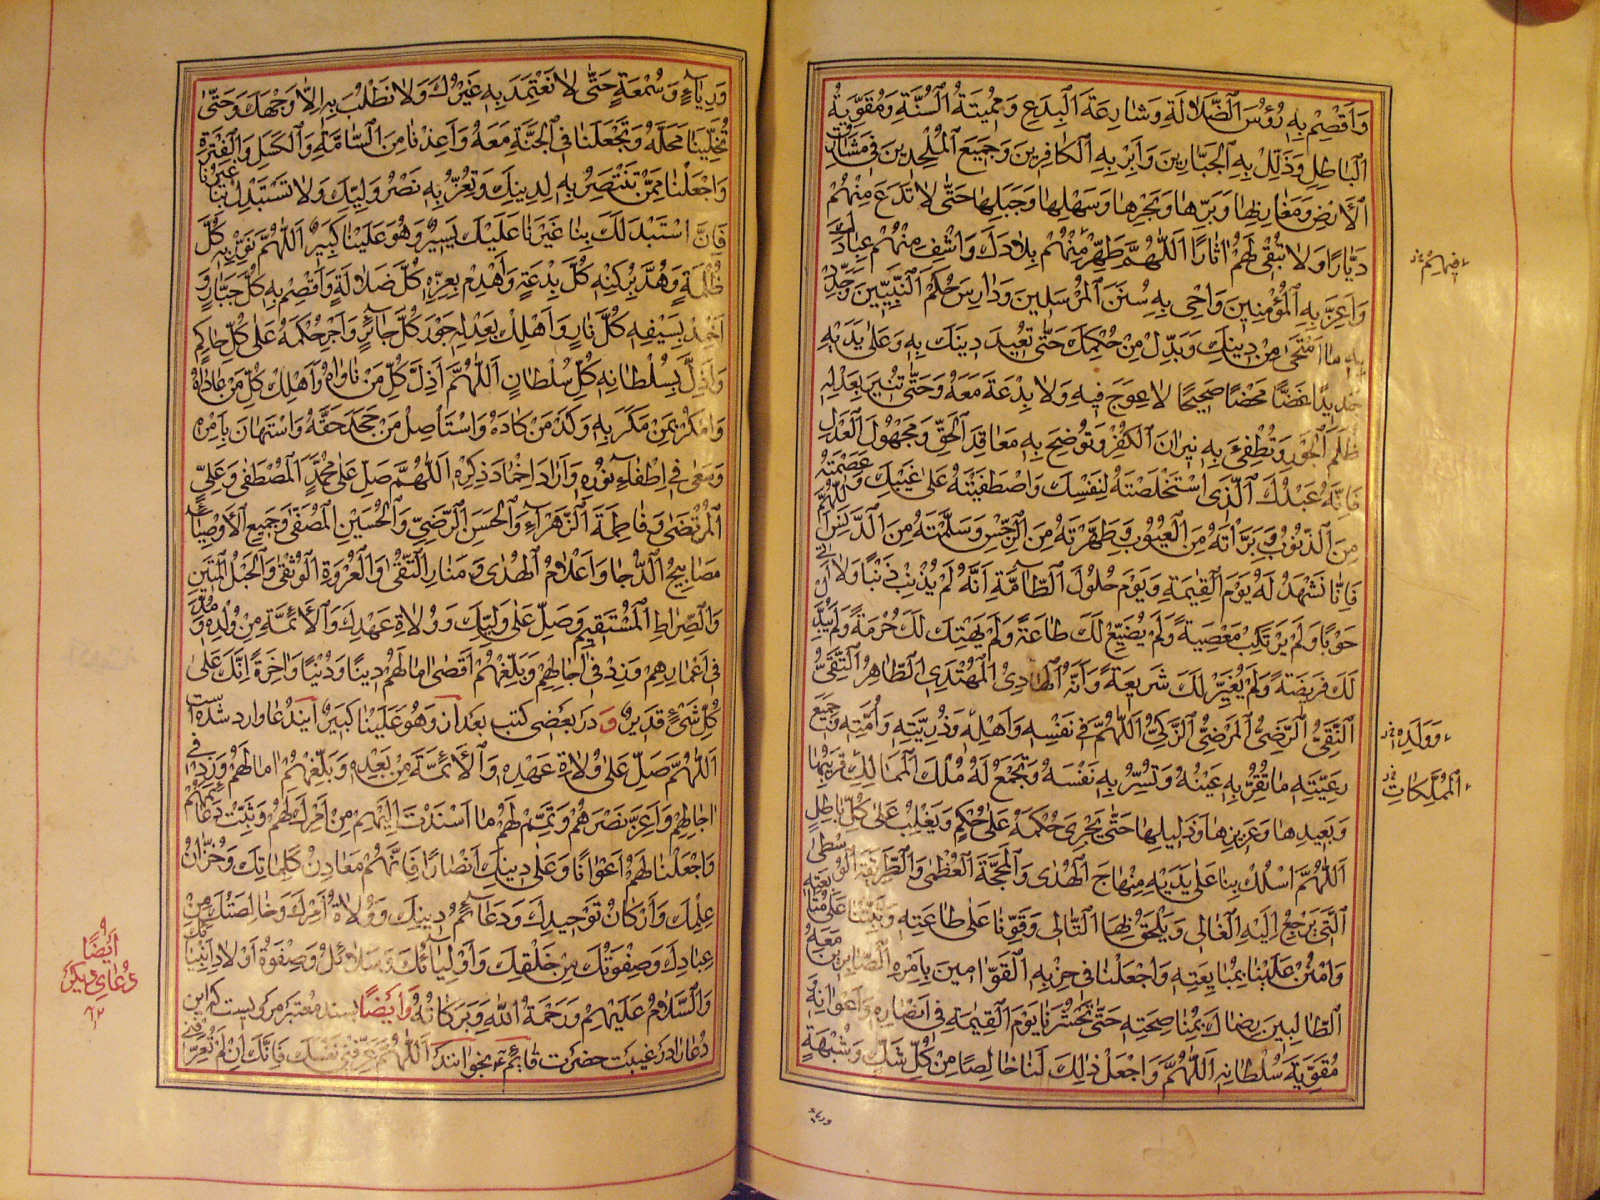 وَاقْصِمْ بِهِ رُؤُسَ الضَّلَالَةِ وَشَارِعَةَ الْبِدَعِ وَمُمِيتَةَ السُّنَّةِ وَمُقَوِّيَةَ
الْبَاطِلِ وَذَلِّلْ بِهِ الْجَبَّارِينَ وَأَبِرْ بِهِ الْكَافِرِينَ وَجَمِيعَ الْمُلْحِدِينَ فِي مَشَارِقِ
الْأَرْضِ وَمَغَارِبِهَا وَبَرِّهَا وَبَحْرِهَا وَسَهْلِهَا وَجَبَلِهَا حَتَّى لَا تَدَعَ مِنْهُمْ
دَيَّارًا وَلَا تُبْقِيَ لَهُمْ اٰثَارًا اَللّٰهُمَّ طَهِّرْ مِنْهُمْ بِلَادَكَ وَاشْفِ مِنْهُمْ عِبَادَكَ
وَاَعِزَّ بِهِ الْمُؤْمِنِينَ وَاَحْيِ بِهِ سُنَنَ الْمُرْسَلِينَ وَدَارِسَ حُكْمِ النَّبِيِّينَ وَجَدِّدْ
بِهِ مَا امْتَحٰى مِنْ دِينِكَ وَبُدِّلَ مِنْ حُكْمِكَ حَتَّى تُعِيدَ دِينَكَ بِهِ وَعَلٰى يَدَيْهِ
جَدِيدًا غَضًّا مَحْضًا صَحِيحًا لَا عِوَجَ فِيهِ وَلَا بِدْعَةَ مَعَهُ وَحَتَّى تُنِيرَ بِعَدْلِهِ
ظُلَمَ الْجَوْرِ وَتُطْفِئَ بِهِ نِيرَانَ الْكُفْرِ وَتُوضِحَ بِهِ مَعَاقِدَ الْحَقِّ وَمَجْهُولَ الْعَدْلِ
فَاِنَّهُ عَبْدُكَ الَّذِي اسْتَخْلَصْتَهُ لِنَفْسِكَ وَاصْطَفَيْتَهُ عَلٰى غَيْبِكَ وَعَصَمْتَهُ
مِنَ الذُّنُوبِ وَبَرَّاْتَهُ مِنَ الْعُيُوبِ وَطَهَّرْتَهُ مِنَ الرِّجْسِ وَسَلَّمْتَهُ مِنَ الدَّنَسِ اَللّٰهُمَّ
فَاِنَّا نَشْهَدُ لَهُ يَوْمَ الْقِيٰمَةِ وَيَوْمَ حُلُولِ الطَّامَّةِ اَنَّهُ لَمْ يُذْنِبْ ذَنْبًا وَلَا اَتٰى
حَوْبًا وَلَمْ يَرْتَكِبْ مَعْصِيَةً وَلَمْ يُضَيِّعْ لَكَ طَاعَةً وَلَمْ يَهْتِكْ لَكَ حُرْمَةً وَلَمْ يُبَدِّلْ
لَكَ فَرِيضَةً وَلَمْ يُغَيِّرْ لَكَ شَرِيعَةً وَاَنَّهُ الْهَادِي الْمُهْتَدِي الطَّاهِرُ التَّقِيُّ
النَّقِيُّ الرَّضِيُّ الْمَرْضِيُّ الزَّكِيُّ اَللّٰهُمَّ فِي نَفْسِهِ وَاَهْلِهِ وَذُرِّيَّتِهِ وَاُمَّتِهِ وَجَمِيعِ
رَعِيَّتِهِ مَا تُقِرُّ بِهِ عَيْنَهُ وَتَسُرُّ بِهِ نَفْسَهُ وَتَجْمَعُ لَهُ مُلْكَ الْمَمَالِكِ قَرِيبِهَا
وَبَعِيدِهَا وَعَزِيزِهَا وَذَلِيلِهَا حَتَّى يَجْرِيَ حُكْمُهُ عَلٰى حُكْمٍ وَيَغْلِبَ عَلٰى كُلِّ بَاطِلٍ
اَللّٰهُمَّ اسْلُكْ بِنَا عَلٰى يَدَيْهِ مِنْهَاجَ الْهُدٰى وَالْمَحَجَّةَ الْعُظْمٰى وَالطَّرِيقَةَ الْوُسْطٰى
الَّتِي يَرْجِعُ اِلَيْهَا الْغَالِي وَيَلْحَقُ بِهَا التَّالِي وَقَوِّنَا عَلٰى طَاعَتِهِ وَثَبِّتْنَا عَلٰى مُتَابَعَتِهِ
وَامْنُنْ عَلَيْنَا بِمُبَايَعَتِهِ وَاجْعَلْنَا فِي حِزْبِهِ الْقَوَّامِينَ بِاَمْرِهِ الصَّابِرِينَ مَعَهُ
الطَّالِبِينَ رِضَاكَ بِمُنَاصَحَتِهِ حَتَّى تَحْشُرَنَا يَوْمَ الْقِيٰمَةِ فِي اَنْصَارِهِ وَاَعْوَانِهِ وَ
مُقَوِّيَةِ سُلْطَانِهِ اَللّٰهُمَّ وَاجْعَلْ ذٰلِكَ لَنَا خَالِصًا مِنْ كُلِّ شَكٍّ وَشُبْهَةٍ
وَوَلَدِهِ
الْمُمَلَّكَاتِ
وَرِيَاءٍ وَسُمْعَةٍ حَتَّى لَا نَعْتَمِدَ بِهِ غَيْرَكَ وَلَا نَطْلُبَ بِهِ اِلَّا وَجْهَكَ وَحَتَّى
تُحِلَّنَا مَحَلَّهُ وَتَجْعَلَنَا فِي الْجَنَّةِ مَعَهُ وَاَعِذْنَا مِنَ السَّاٰمَةِ وَالْكَسَلِ وَالْفَتْرَةِ
وَاجْعَلْنَا مِمَّنْ تَنْتَصِرُ بِهِ لِدِينِكَ وَتُعِزُّ بِهِ نَصْرَ وَلِيِّكَ وَلَا تَسْتَبْدِلْ بِنَا غَيْرَنَا
فَاِنَّ اسْتِبْدَالَكَ بِنَا غَيْرَنَا عَلَيْكَ يَسِيرٌ وَهُوَ عَلَيْنَا كَبِيرٌ اَللّٰهُمَّ نَوِّرْ بِهِ كُلَّ
ظُلْمَةٍ وَهُدَّ بِرُكْنِهِ كُلَّ بِدْعَةٍ وَاهْدِمْ بِعِزِّهِ كُلَّ ضَلَالَةٍ وَاقْصِمْ بِهِ كُلَّ جَبَّارٍ وَ
اَخْمِدْ بِسَيْفِهِ كُلَّ نَارٍ وَاَهْلِكْ بِعَدْلِهِ جَوْرَ كُلِّ جَائِرٍ وَاَجْرِ حُكْمَهُ عَلٰى كُلِّ حَاكِمٍ
وَاَذِلَّ بِسُلْطَانِهِ كُلَّ سُلْطَانٍ اَللّٰهُمَّ اَذِلَّ كُلَّ مَنْ نَاوَاهُ وَاَهْلِكْ كُلَّ مَنْ عَادَاهُ
وَامْكُرْ بِمَنْ مَكَرَ بِهِ وَكِدْ مَنْ كَادَهُ وَاسْتَاْصِلْ مَنْ جَحَدَ حَقَّهُ وَاسْتَهَانَ بِاَمْرِهِ
وَسَعٰى فِي اِطْفَاءِ نُورِهِ وَاَرَادَ اِخْمَادَ ذِكْرِهِ اَللّٰهُمَّ صَلِّ عَلٰى مُحَمَّدٍ الْمُصْطَفٰى وَعَلِيٍّ
الْمُرْتَضٰى وَفَاطِمَةَ الزَّهْرَاءِ وَالْحَسَنِ الرَّضِيِّ وَالْحُسَيْنِ الْمُصَفّٰى وَجَمِيعِ الْاَوْصِيَاءِ
مَصَابِيحِ الدُّجَا وَاَعْلَامِ الْهُدٰى وَمَنَارِ التُّقٰى وَالْعُرْوَةِ الْوُثْقٰى وَالْحَبْلِ الْمَتِينِ
وَالصِّرَاطِ الْمُسْتَقِيمِ وَصَلِّ عَلٰى وَلِيِّكَ وَوُلَاةِ عَهْدِكَ وَالْاَئِمَّةِ مِنْ وُلْدِهِ وَمُدَّ
فِي اَعْمَارِهِمْ وَزِدْ فِي اٰجَالِهِمْ وَبَلِّغْهُمْ اَقْصٰى اٰمَالِهِمْ دِينًا وَدُنْيَا وَاٰخِرَةً اِنَّكَ عَلٰى
كُلِّ شَيْءٍ قَدِيرٌ وَ در بعضى كتب بعد از وَهُوَ عَلَيْنَا كَبِيرٌ ايندعا وارد شده است
اَللّٰهُمَّ صَلِّ عَلٰى وُلَاةِ عَهْدِهِ وَالْاَئِمَّةِ مِنْ بَعْدِهِ وَبَلِّغْهُمْ اٰمَالَهُمْ وَزِدْ فِي
اٰجَالِهِمْ وَاَعِزَّ نَصْرَهُمْ وَتَمِّمْ لَهُمْ مَا اَسْنَدْتَ اِلَيْهِمْ مِنْ اَمْرِكَ لَهُمْ وَثَبِّتْ دَعَائِمَهُمْ
وَاجْعَلْنَا لَهُمْ اَعْوَانًا وَعَلٰى دِينِكَ اَنْصَارًا فَاِنَّهُمْ مَعَادِنُ كَلِمَاتِكَ وَخُزَّانُ
عِلْمِكَ وَاَرْكَانُ تَوْحِيدِكَ وَدَعَائِمُ دِينِكَ وَوُلَاةُ اَمْرِكَ وَخَالِصَتُكَ مِنْ
عِبَادِكَ وَصَفْوَتُكَ مِنْ خَلْقِكَ وَاَوْلِيَائُكَ وَسَلَائِلُ وَصَفْوَةُ اَوْلَادِ اَنْبِيَائِكَ
وَالسَّلَامُ عَلَيْهِمْ وَرَحْمَةُ اللّٰهِ وَبَرَكَاتُهُ وَاَيْضًا بسند معتبر مرويست كه اين
دعا را در غيبت حضرت قَائِم بخوانند اَللّٰهُمَّ عَرِّفْنِي نَفْسَكَ فَاِنَّكَ اِنْ لَمْ تُعَرِّفْنِي
اَيْضًا
دُعَاىِ ديگر